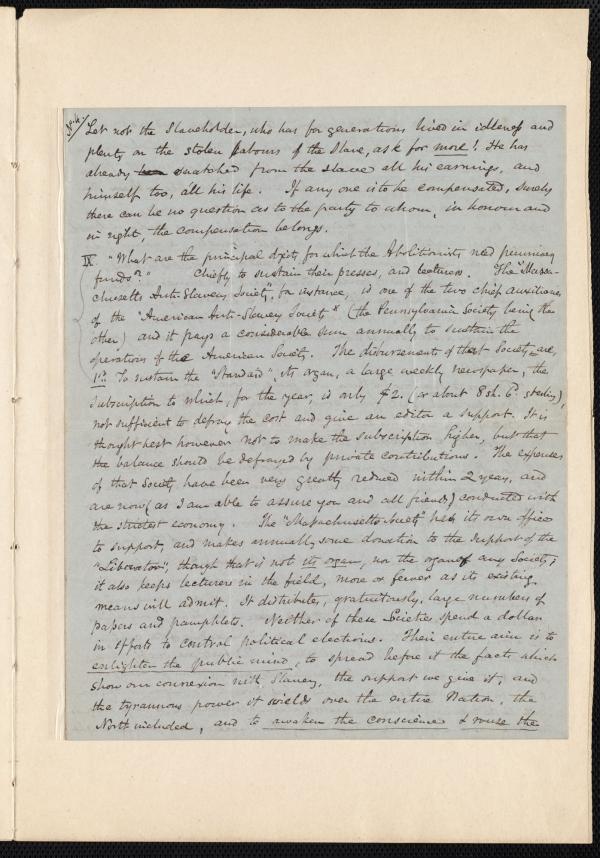 Let not the Slaveholder, who has for generations lived in idleness and
plenty on the stolen labours of the Slave, ask for more! He has
already been snatched from the slave all his earnings, and
himself too, all his life. If any one is to be compensated, surely
there can be no question as to the party to whom, in honour and
in right, the compensation belongs.
IX "What are the principal objects for which the Abolitionists need pecuniary
funds?" Chiefly to sustain their presses, and lecturers. The "Massa-
chusetts Anti-Slavery Society", for instance, is one of the two chief auxiliaries
of the "American Anti-Slavery Society" (the Pennsylvania Society being the
other) and it pays a considerable sum annually to sustain the
operations of the American Society. The disbursements of that Society are,
1st. To sustain the "Standard", its organ, a large weekly newspaper, the
subscription to which, for the year, is only $2. (or about 8 sh. 6d. sterling),
not sufficient to defray the cost and give an editor a support. It is
thought best however not to make the subscription higher, but that
the balance should be defrayed by private contributions. The expenses
of that Society have been very greatly reduced within 2 years, and
are now (as I am able to assure you and all friends) conducted with
the strictest economy. The "Massachusetts Society" has its own office
to support, and makes annually some donation to the support of the
"Liberator", though that is not its organ, nor the organ of any Society;
it also keeps lecturers in the field, more or fewer as its existing
means will admit. It distributes, gratuitously, large numbers of
papers and pamphlets. Neither of these Societies spend a dollar
in efforts to control political elections. Their entire aim is to
enlighten the public mind, to spread before it the facts which
show our connexion with Slavery, the support we give it, and
the tyrannous power it wields over the entire Nation, the
North included, and to awaken the conscience & rouse the